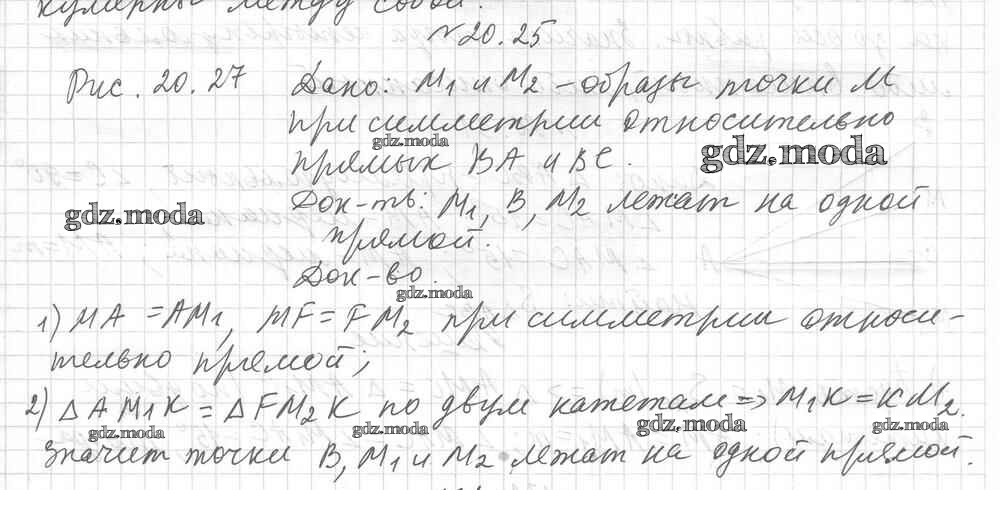 кулярны между собой.
№20.25
Рис. 20.27 Дано: M1 и M2 – образы точки M
при симметрии относительно
gdz.moda
прямых BA и BC.
gdz.moda
Док-ть: M1, B, M2 лежат на одной
gdz.moda
прямой.
Док-во.
gdz.moda
1) MA = AM1, MF = FM2 при симметрии относи-
тельно прямой;
2) △AM1K = △FM2K по двум катетам ⇒ M1K = KM2.
gdz.moda gdz.moda gdz.moda gdz.moda
Значит точки B, M1 и M2 лежат на одной прямой.